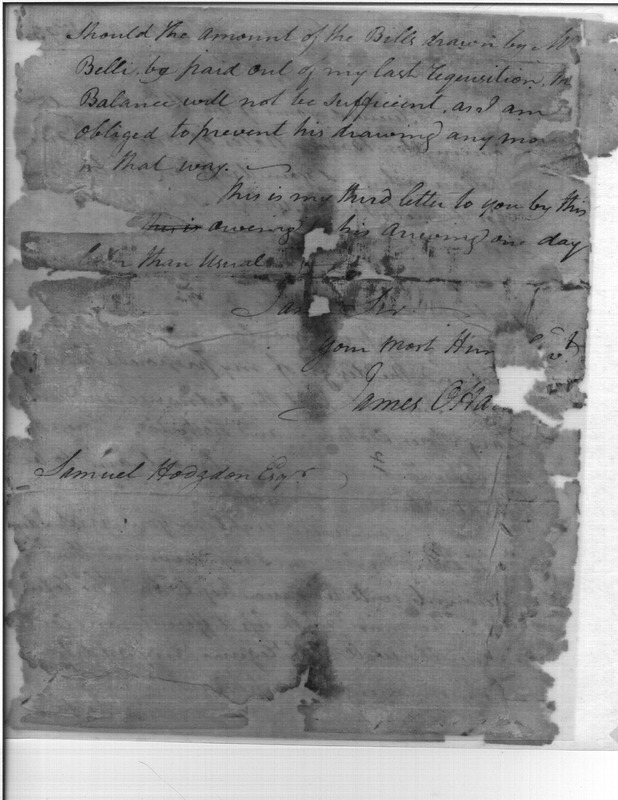 Should the amount of the Bills drawn by M
Belli be paid out of my last requisition, th
Balance will not be sufficient, as I am
obliged to prevent his drawing any mo
in that way.
this is my third letter to you by this
this is owing his arriving one day
than Usual
I am Sir
your most Hum
James OHa
Samuel Hodgdon Esqr